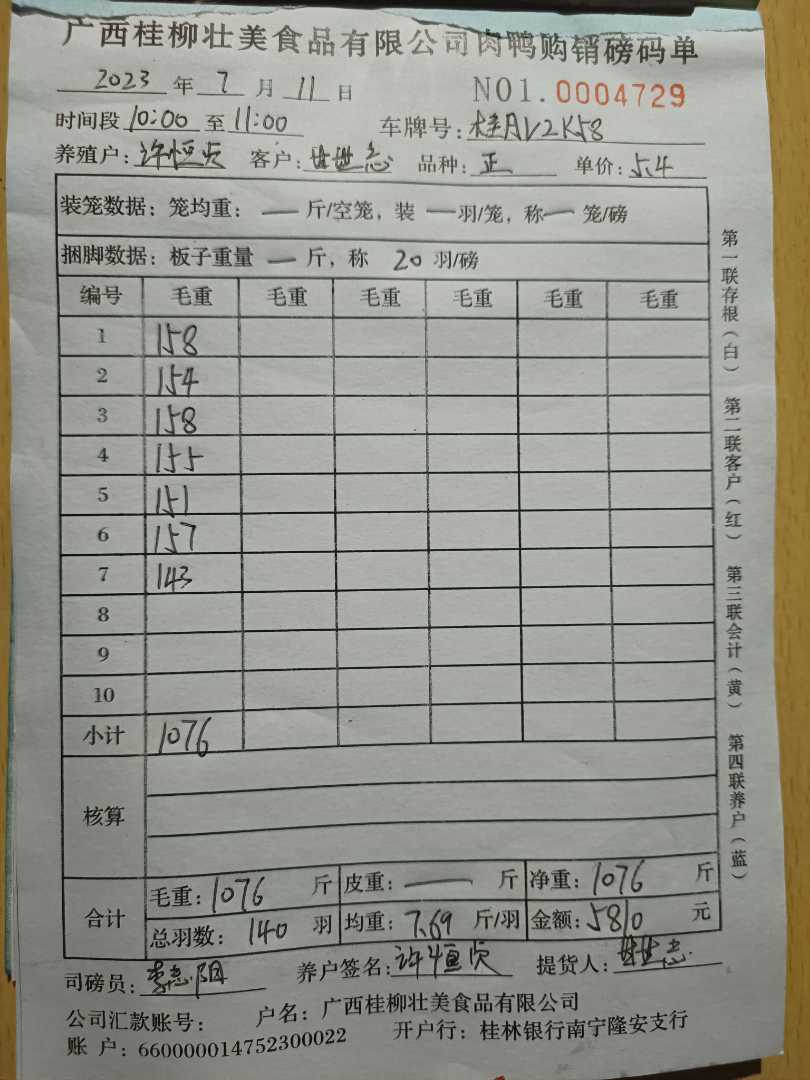 广西桂柳壮美食品有限公司肉鸭购销磅码单
2023 年 7 月 11 日 NO1.0004729
时间段 10:00 至 11:00 车牌号: 桂AV2K58
养殖户: 许恒贞 客户: 世志 品种: 正 单价: 5.4
装笼数据: 笼均重: — 斤/空笼, 装 — 羽/笼, 称 — 笼/磅
捆脚数据: 板子重量 — 斤, 称 20 羽/磅
编号 毛重 毛重 毛重 毛重 毛重 毛重
1 158
2 154
3 158
4 155
5 151
6 157
7 143
8
9
10
小计 1076
核算
合计 毛重: 1076 斤 皮重: — 斤 净重: 1076 斤
总羽数: 140 羽 均重: 7.69 斤/羽 金额: 5810 元
司磅员: 李志阳 养户签名: 许恒贞 提货人: 世志
公司汇款账号: 户名: 广西桂柳壮美食品有限公司
账 户: 660000014752300022 开户行: 桂林银行南宁隆安支行
第一联存根(白) 第二联客户(红) 第三联会计(黄) 第四联养户(蓝)